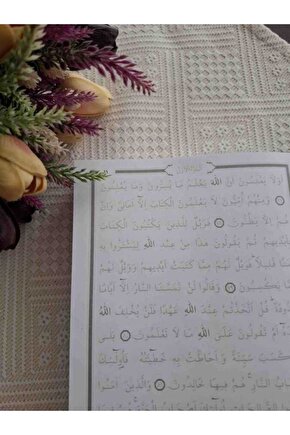 اَوَلَا يَعْلَمُونَ اَنَّ اللّٰهَ يَعْلَمُ مَا يُسِرُّونَ وَمَا يُعْلِنُونَ
۝ وَمِنْهُمْ اُمِّيُّونَ لَا يَعْلَمُونَ الْكِتَابَ اِلَّا اَمَانِيَّ وَاِنْ
هُمْ اِلَّا يَظُنُّونَ ۝ فَوَيْلٌ لِلَّذِينَ يَكْتُبُونَ الْكِتَابَ
بِاَيْدِيهِمْ ثُمَّ يَقُولُونَ هٰذَا مِنْ عِنْدِ اللّٰهِ لِيَشْتَرُوا بِهِ
ثَمَنًا قَلِيلًا فَوَيْلٌ لَهُمْ مِمَّا كَتَبَتْ اَيْدِيهِمْ وَوَيْلٌ لَهُمْ
يَكْسِبُونَ ۝ وَقَالُوا لَنْ تَمَسَّنَا النَّارُ اِلَّا اَيَّامًا
قُلْ اَتَّخَذْتُمْ عِنْدَ اللّٰهِ عَهْدًا فَلَنْ يُخْلِفَ اللّٰهُ
اَمْ تَقُولُونَ عَلَى اللّٰهِ مَا لَا تَعْلَمُونَ ۝ بَلٰى
كَسَبَ سَيِّئَةً وَاَحَاطَتْ بِهِ خَطِيئَتُهُ فَاُولٰئِكَ
النَّارِ هُمْ فِيهَا خَالِدُونَ ۝ وَالَّذِينَ اٰمَنُوا